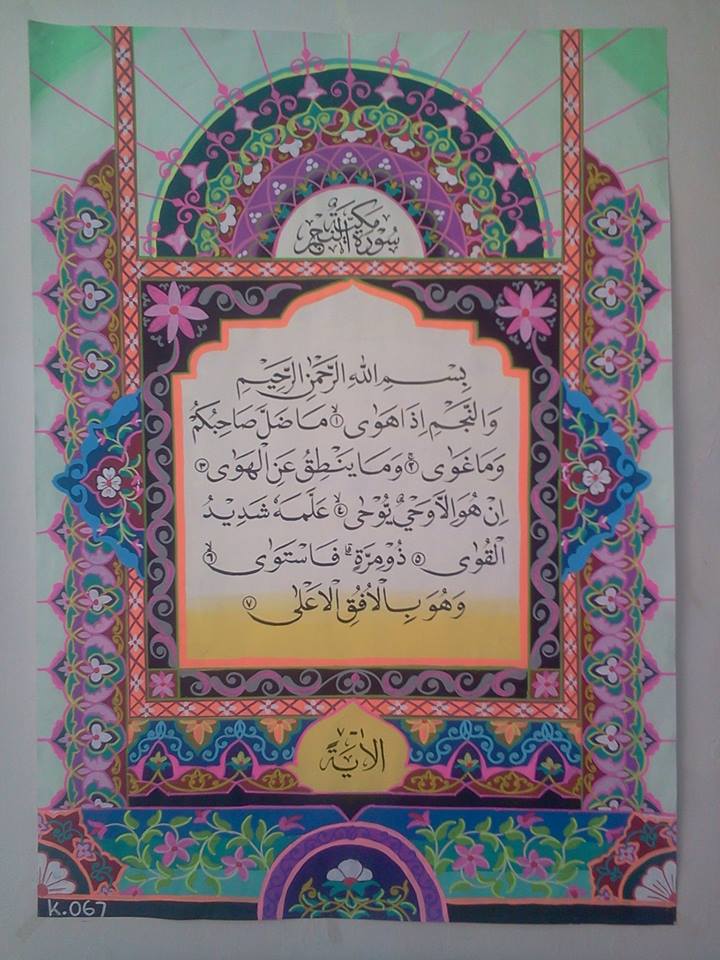 سُورَةُ النَّجْمِ مَكِّيَّة
بِسْمِ اللهِ الرَّحْمٰنِ الرَّحِيْمِ
وَالنَّجْمِ اِذَا هَوٰى ۙ١ مَا ضَلَّ صَاحِبُكُمْ
وَمَا غَوٰى ۚ٢ وَمَا يَنْطِقُ عَنِ الْهَوٰى ۗ٣
اِنْ هُوَ اِلَّا وَحْيٌ يُّوْحٰى ۙ٤ عَلَّمَهٗ شَدِيْدُ
الْقُوٰى ۙ٥ ذُوْ مِرَّةٍ ۗ فَاسْتَوٰى ۙ٦
وَهُوَ بِالْاُفُقِ الْاَعْلٰى ٧
الْاٰيَةَ
K.067